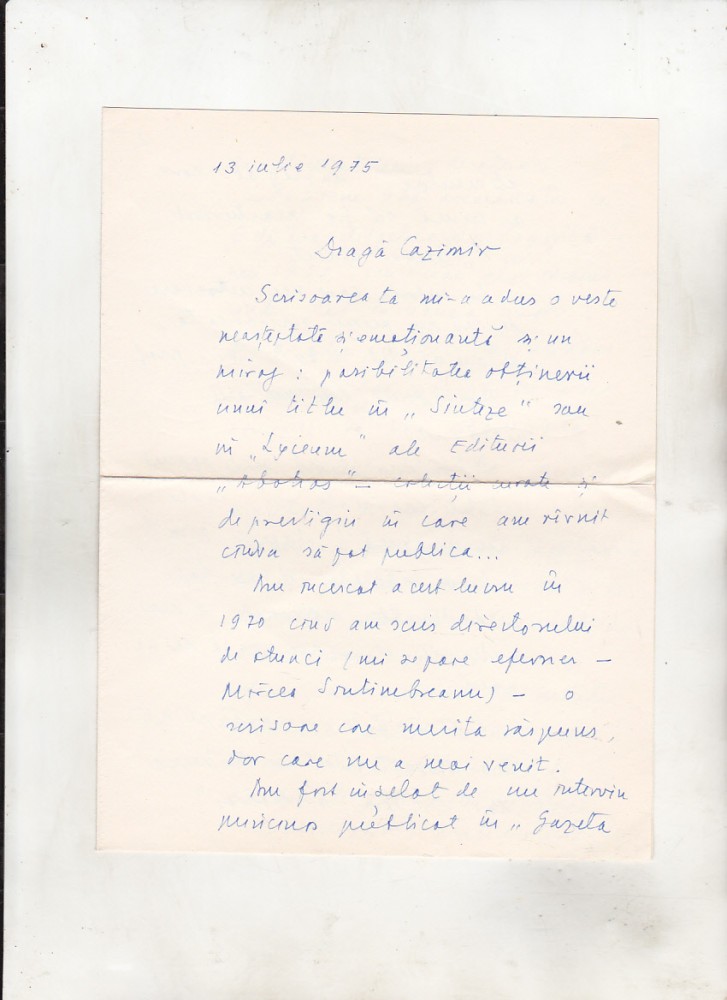 13 iulie 1975
Dragă Cazimir
Scrisoarea ta mi-a adus o veste
neașteptată și emoționantă și un
miraj : posibilitatea obținerii
unui titlu în „Sinteze" sau
în „Lyceum" ale Editurii
„Albatros" – colecții curate și
de prestigiu în care am rîvnit
cîndva să pot publica...
Am încercat acest lucru în
1970 cînd am scris directorului
de atunci (mi se pare efemer –
Mircea Sîntimbreanu) – o
scrisoare care merita răspuns,
dar care nu a mai venit.
Am fost înșelat de un interviu
publicat în „Gazeta